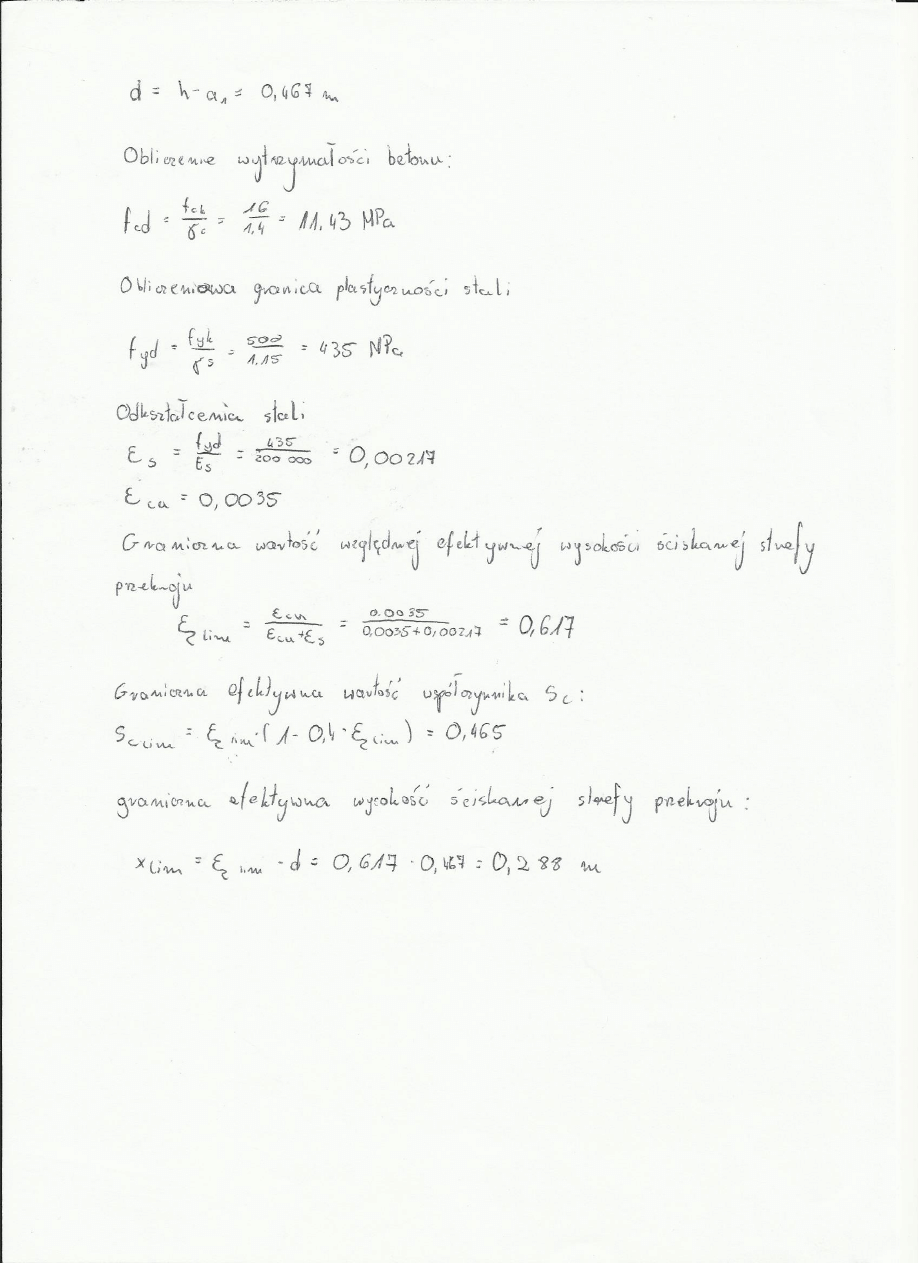 d = h - a₁ = 0,467 m
Obliczenie wytrzymałości betonu:
fcd = fck/γc = 16/1,4 = 11.43 MPa
Obliczeniowa granica plastyczności stali
fyd = fyk/γs = 500/1.15 = 435 MPa
Odkształcenia stali
εs = fyd/Es = 435/200 000 = 0,00217
εcu = 0,0035
Graniczna wartość względnej efektywnej wysokości ściskanej strefy
przekroju
ξlim = εcu/εcu+εs = 0.0035/0,0035+0,00217 = 0,617
Graniczna efektywna wartość współczynnika Sc:
Sc lim = ξlim · (1 - 0,4 · ξlim) = 0,465
graniczna efektywna wysokość ściskanej strefy przekroju:
xlim = ξlim · d = 0,617 · 0,467 = 0,288 m